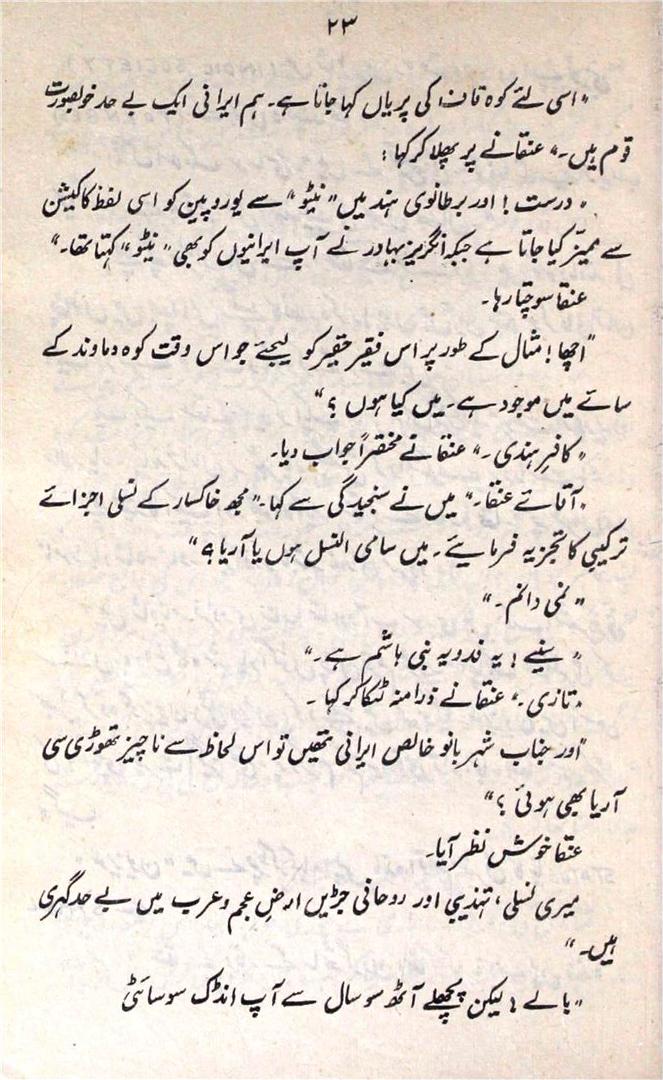 ۲۳
"اسی لئے کوہ قاف کی پریاں کہا جاتا ہے۔ ہم ایرانی ایک بے حد خوبصورت
قوم ہیں۔" عنقا نے پر پھلا کر کہا:
"درست! اور برطانوی ہند میں "نیٹو" سے یوروپین کو اسی لفظ کاکیشن
سے ممیّز کیا جاتا ہے جبکہ انگریز بہادر نے آپ ایرانیوں کو بھی "نیٹو" کہتا تھا۔"
عنقا سوچتا رہا۔
"اچھا! مثال کے طور پر اس فقیر حقیر کو لیجئے جو اس وقت کوہ دماوند کے
سائے میں موجود ہے۔ میں کیا ہوں؟"
"کافرِ ہندی۔" عنقا نے مختصراً جواب دیا۔
"آقائے عنقا۔" میں نے سنجیدگی سے کہا۔ "مجھ خاکسار کے نسلی اجزائے
ترکیبی کا تجزیہ فرمایئے۔ میں سامی النسل ہوں یا آریا؟"
"نمی دانم۔"
"سنیے! یہ فدویہ بنی ہاشم ہے۔"
"تازی۔" عنقا نے ذرا منہ لٹکا کر کہا۔
"اور جناب شہر بانو خالص ایرانی تھیں تو اس لحاظ سے ناچیز تھوڑی سی
آریا بھی ہوئی؟"
عنقا خوش نظر آیا۔
میری نسلی، تہذیبی اور روحانی جڑیں ارضِ عجم و عرب میں بے حد گہری
ہیں۔"
"بالے! لیکن پچھلے آٹھ سو سال سے آپ انڈک سوسائٹی